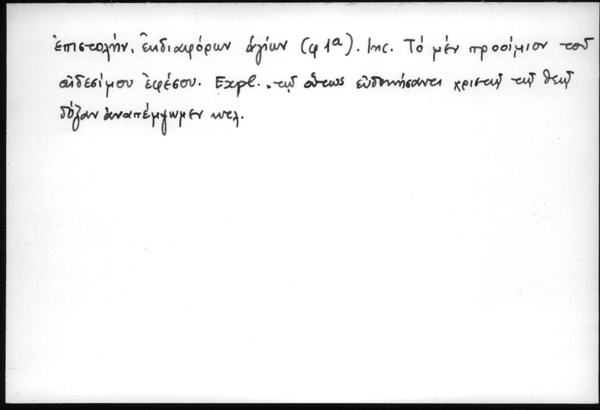 ἐπιστολήν, ἐκ διαφόρων ἁγίων (φ 1ª). Inc. Τὸ μὲν προοίμιον τοῦ
αἰδεσίμου ἐφέσου. Expl. . τῷ οὕτως εὐδοκήσαντι χριστῷ τῷ θεῷ
δόξαν ἀναπέμψωμεν κτλ.